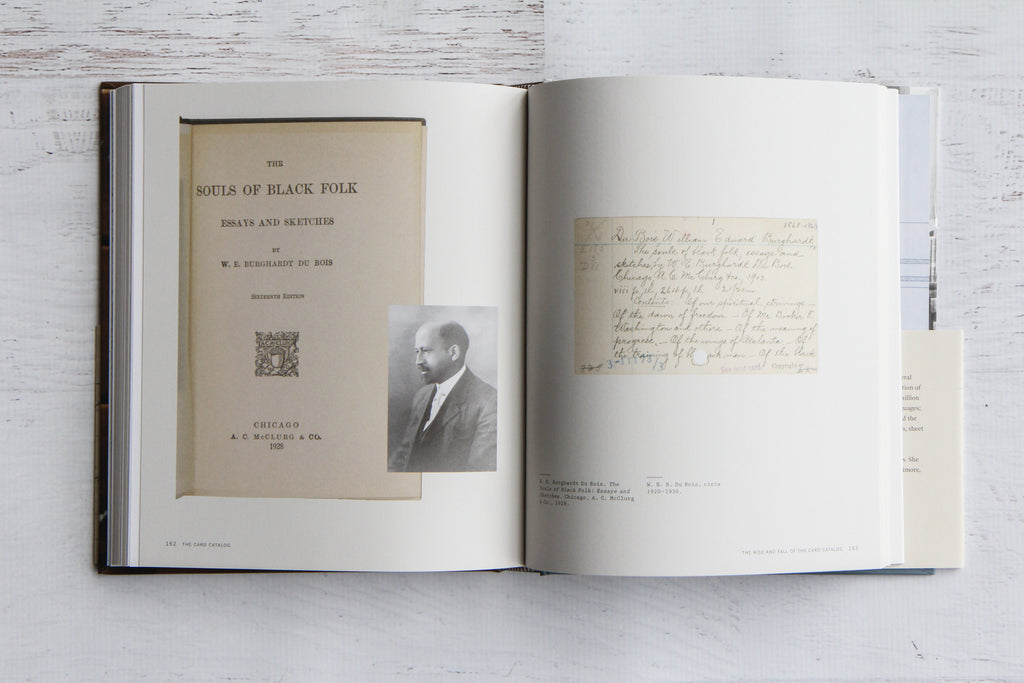 THE
SOULS OF BLACK FOLK
ESSAYS AND SKETCHES
BY
W. E. BURGHARDT DU BOIS
SIXTEENTH EDITION
A.C. McCLURG
CHICAGO
A. C. McCLURG & CO.
1928
162 THE CARD CATALOG
1868-1963
Du Bois William Edward Burghardt,
The souls of black folk essays and
sketches by W. E. Burghardt Du Bois
Chicago, A. C. McClurg & co., 1903.
viii p.,
Contents: Of our spiritual strivings —
Of the dawn of freedom — Of Mr. Booker T.
Washington and others — Of the meaning of
progress. — Of the wings of Atalanta. — Of
the training of black men — Of the black
See next card Copyright
W. E. Burghardt Du Bois, The
Souls of Black Folk: Essays and
Sketches. Chicago, A. C. McClurg
& Co., 1928.
W. E. B. Du Bois, circa
1920–1930.
THE RISE AND FALL OF THE CARD CATALOG 163